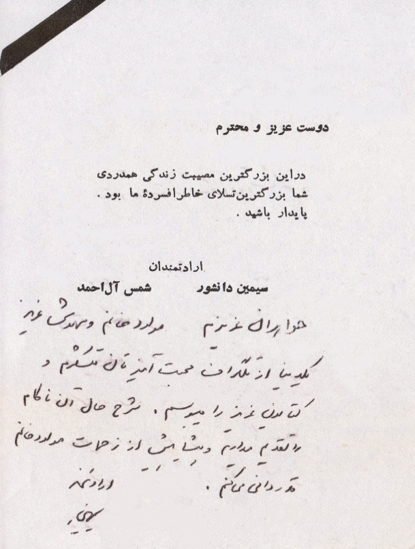 دوست عزیز و محترم
دراین بزرگترین مصیبت زندگی همدردی
شما بزرگترین تسلای خاطر افسردهٔ ما بود .
پایدار باشید .
ارادتمندان
سیمین دانشور شمس آل‌احمد
خواهران عزیزم مولود خانم و مهدخت عزیز
یکدنیا از تلگراف محبت آمیزتان متشکرم و
عزیز را میبوسم . شرح حال آن ناکام
را تقدیم میدارم و از زحمات مولود خانم
قدردانی میکنم .
ارادتمند
سیمین